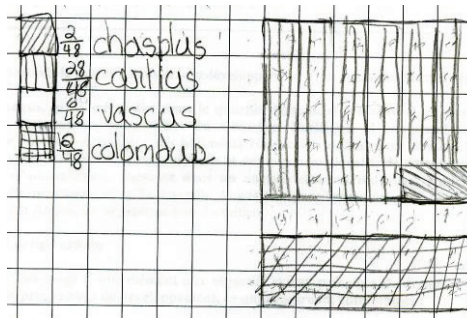 2/48 chasplus
28/48 cartius
6/48 vascus
12/48 colomdus